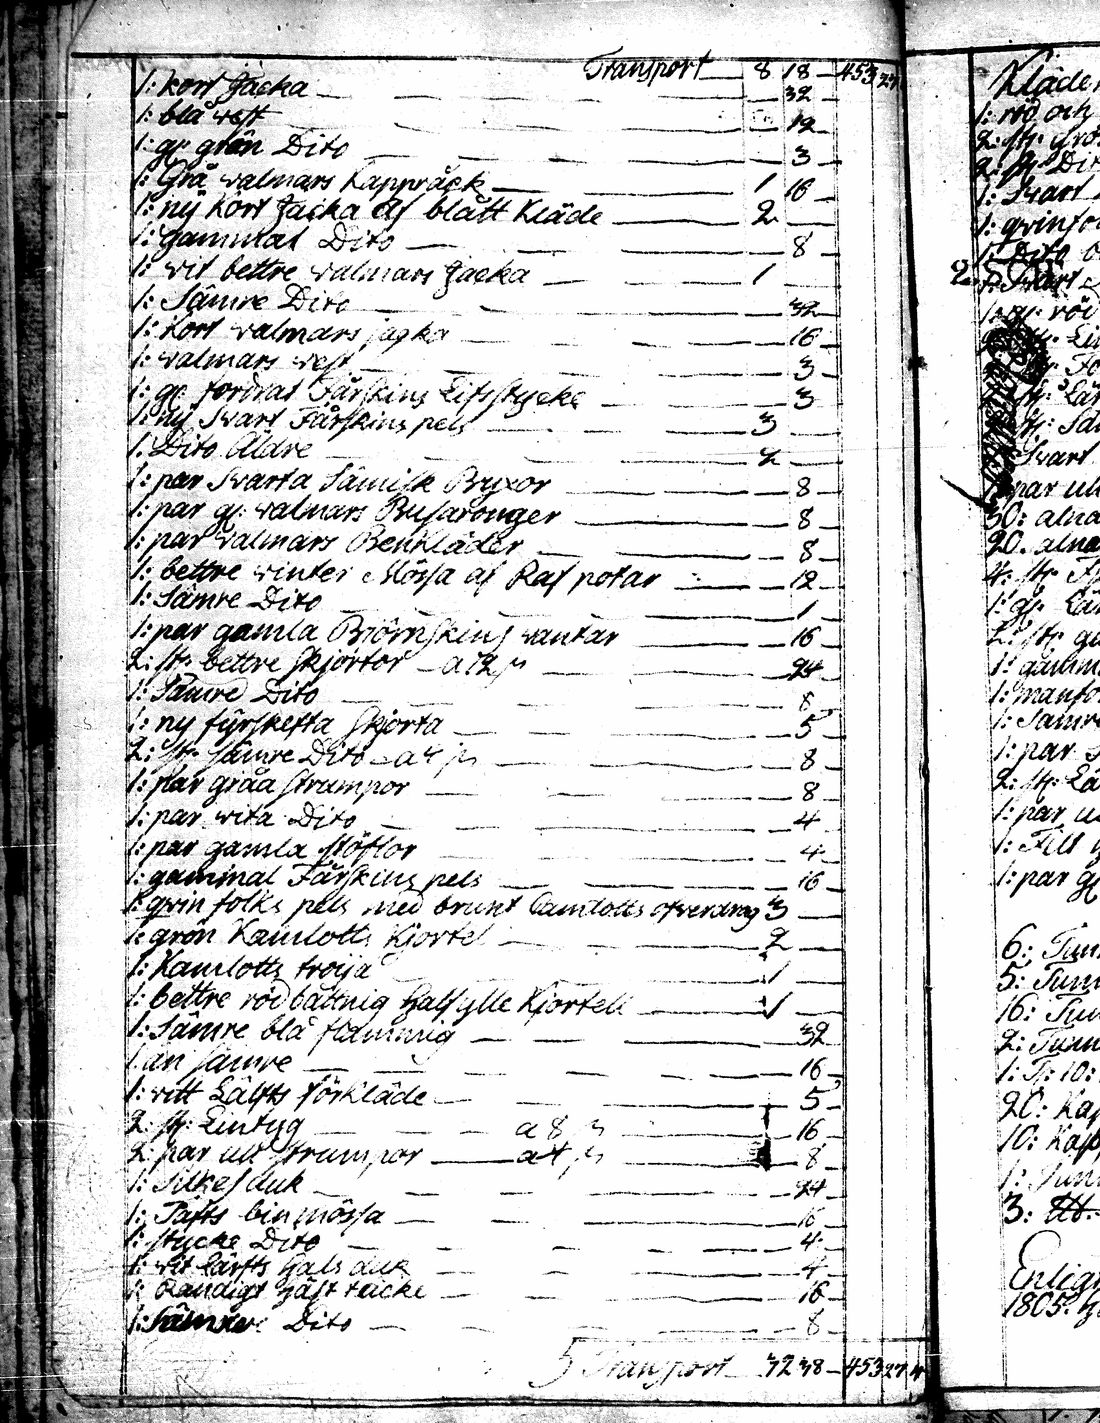 Transport 8 18 453 27
1: kort Jacka 32
1: blå west 12
1: gl: grön Dito 3
1: Grå walmars Kappråck 1 16
1: ny kort Jacka af blått Kläde 2
1: gammal Dito 8
1: wit bettre walmars Jacka 1
1: Sämre Dito 32
1: kort walmars jacka 16
1: walmars west 3
1: gl: fordrat Fårskins Lifsstycke 3
1: ny Swart Fårskins pels 3
1: Dito Äldre 2
1: par Swarta Sämisk Byxor 8
1: par gl: walmars 8
1: par walmars Benkläder 8
1: bettre winter Mössa af Raf potar 12
1: Sämre Dito 1
1: par gamla Björnskins wantar 16
2: st: bettre Skjortor a 12 s 24
1: Sämre Dito 8
1: ny fyrskefta Skjorta 5
2: st: sämre Dito a 4 s 8
1: par gråa strumpor 8
1: par wita Dito 4
1: par gamla stöflor 4
1: gammal Fårskins pels 16
1: qwinfolks pels med brunt Camlotts öfwerdrag 3
1: grön Kamlotts Kjortel 2
1: Kamlotts tröija 1
1: bettre röd bättnig halfylle Kjortell 1
1: Sämre blå flammig 32
1: än sämre 16
1: witt Läfts förkläde 5
2: st: Lintyg a 8 s 16
2: par ull strumpor a 4 s 8
1: Silkes duk 24
1: Tafts binmössa 16
1: stycke Dito 4
1: wit Lärfts hals duk 4
1: Randigt häst täcke 16
1: Sämre Dito 8
Transport 32 38 453 27 4
Kläder
1: röd och
2: st:
2: st: Dit
1: Swart
1: qwinfo
1: Dito
2 Swart
röd
Swart
par ull
30: alna
20: alna
4: st:
1: gl:
2: st:
1: gamm
1: manfo
1: Sämre
1: par
2: st:
1: par u
1: Filt
1: par gl
6: Tun
5: Tunn
16: Tun
2: Tunn
1: T: 10:
20: Kap
10: Kapp
1: Tunn
3:
Enligt
1805.